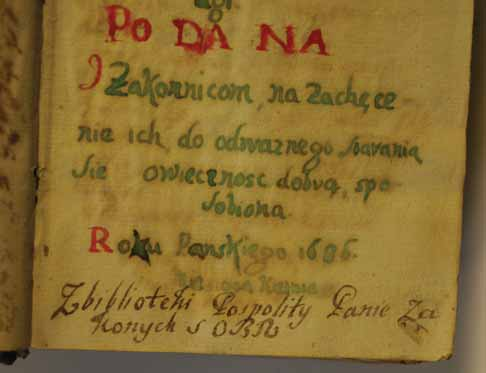 PODANA
Zakonnicom, na Zachęce
nie ich, do odwaznego starania
sie owiecznosc dobrą, spo
sobiona.
Roku Panskiego 1686.
Zbiblioteki Pospolity Panie Za
konych s OBR